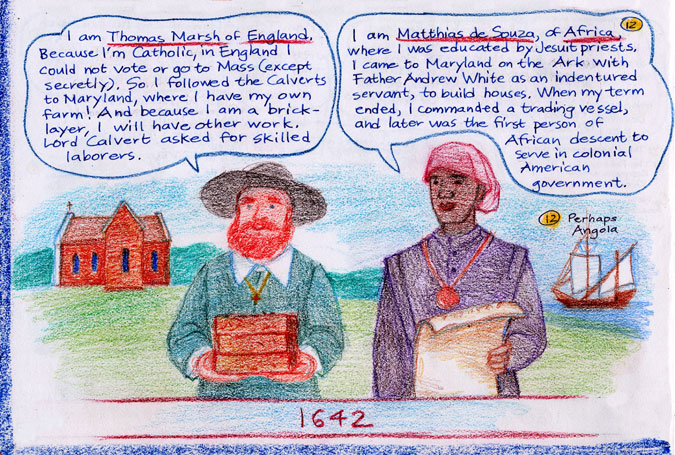 I am Thomas Marsh of England.
Because I'm Catholic, in England I
could not vote or go to Mass (except
secretly). So I followed the Calverts
to Maryland, where I have my own
farm! And because I am a brick-
layer, I will have other work.
Lord Calvert asked for skilled
laborers.
12
I am Matthias de Souza, of Africa,
where I was educated by Jesuit priests.
I came to Maryland on the Ark with
Father Andrew White as an indentured
servant, to build houses. When my term
ended, I commanded a trading vessel,
and later was the first person of
African descent to
serve in colonial
American
government.
12 Perhaps
Angola
1642